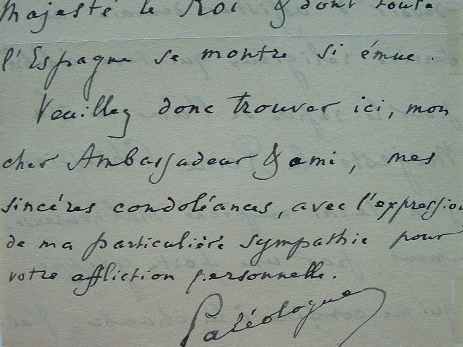 Majesté le Roi & dont toute
l'Espagne se montre si émue.
Veuillez donc trouver ici, mon
cher Ambassadeur & ami, mes
sincères condoléances, avec l'expression
de ma particulière sympathie pour
votre affliction personnelle.
Paléologue